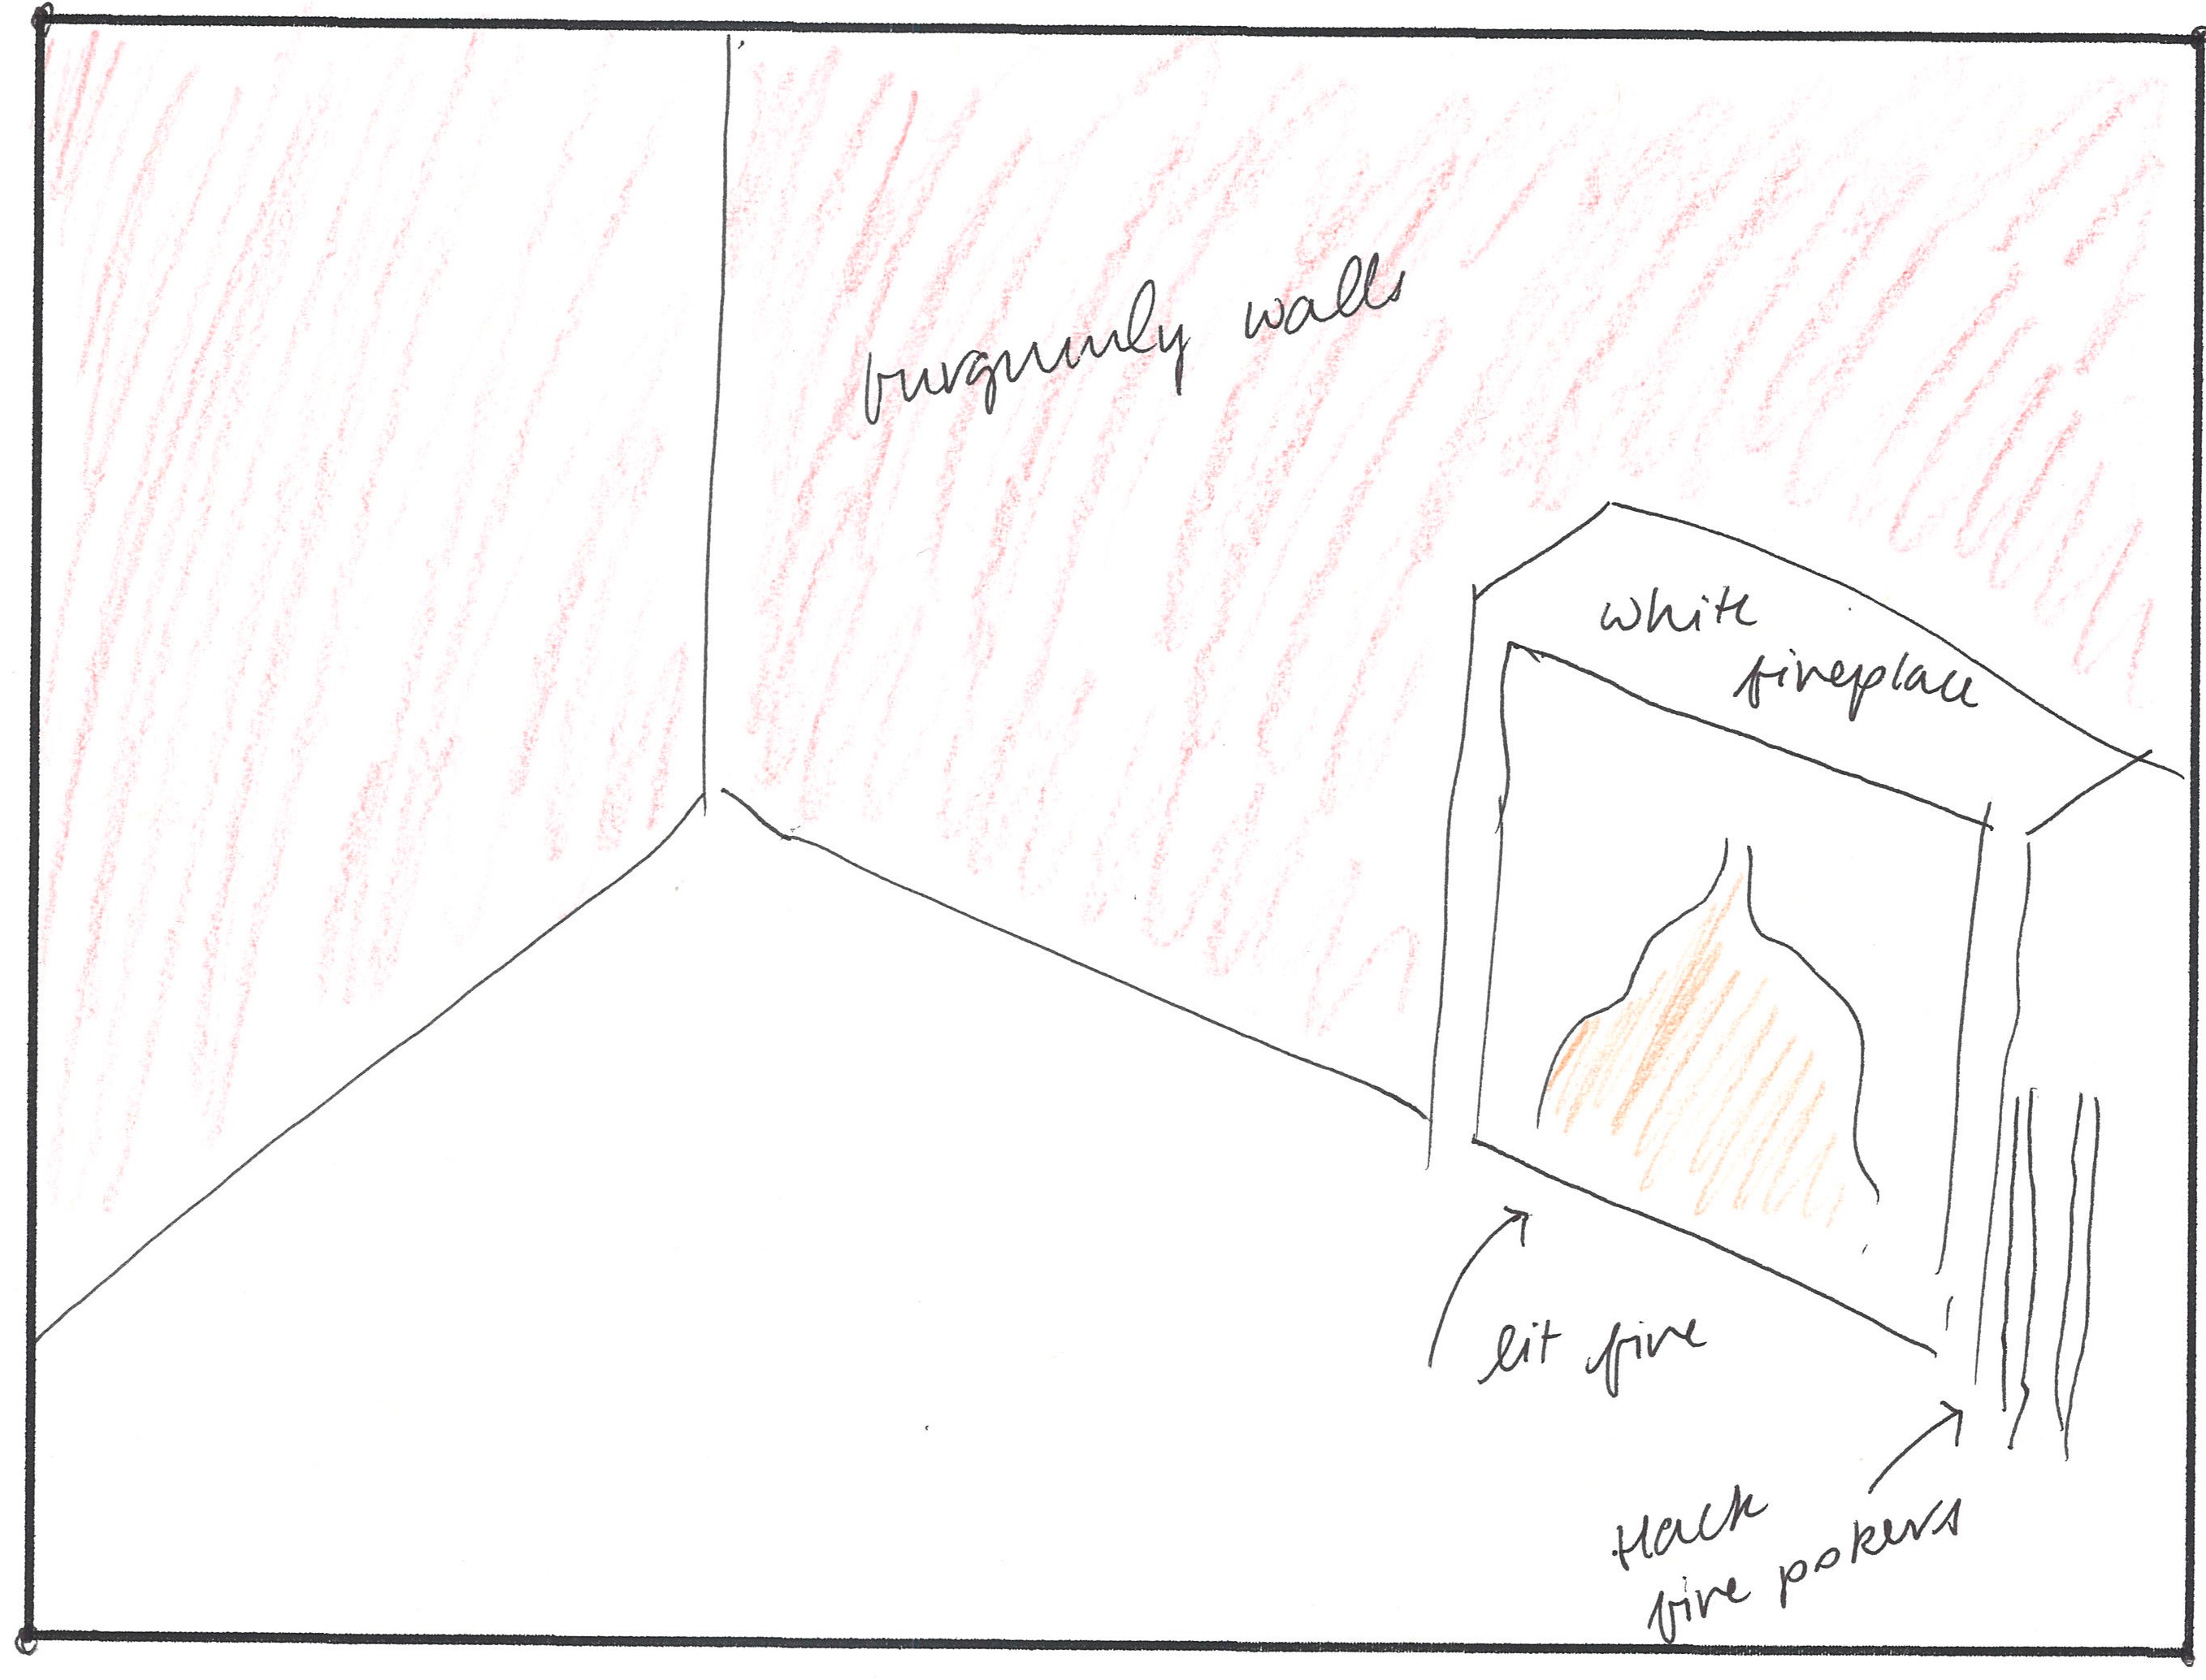 burgundy walls
white
fireplace
lit fire
black
fire pokers